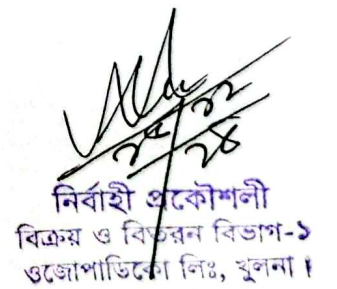 নির্বাহী প্রকৌশলী
বিক্রয় ও বিতরন বিভাগ-১
ওজোপাডিকো লিঃ, খুলনা।